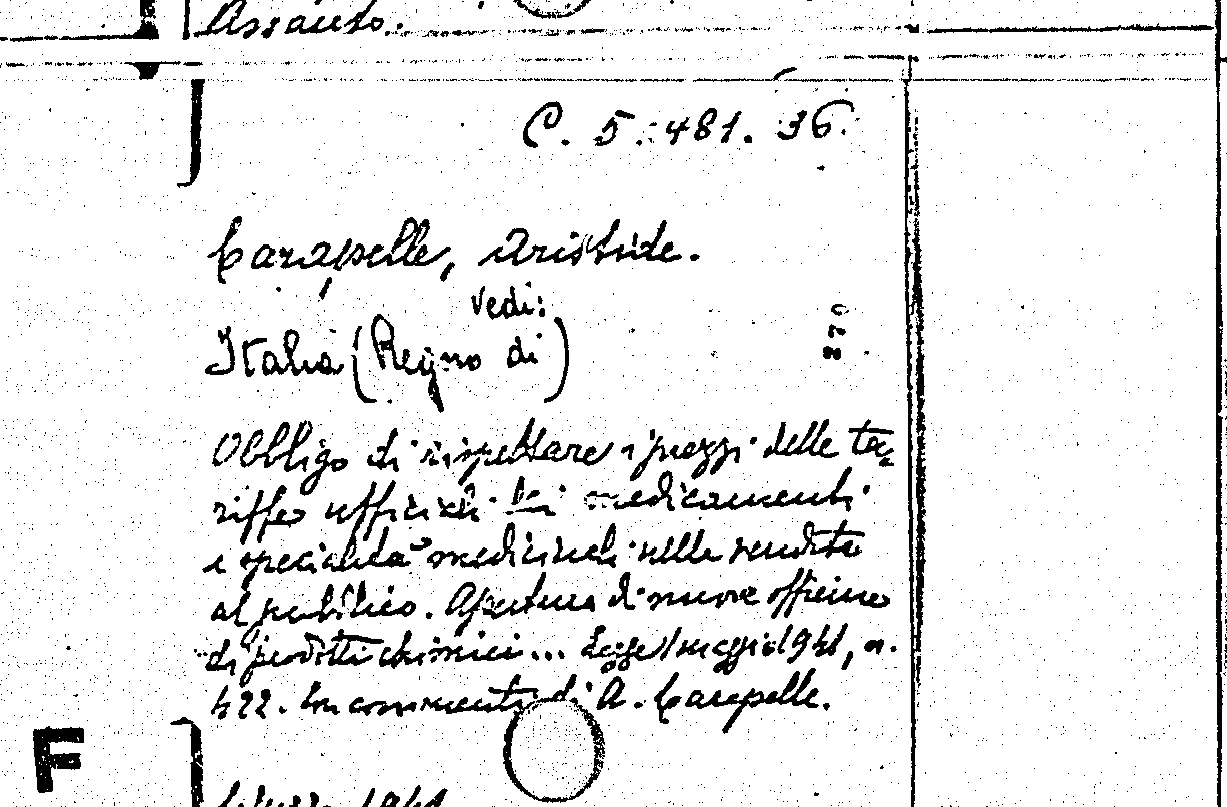 Assauto.
C. 5. 481. 36.
Carapelle, Aristide.
vedi:
Italia (Regno di)
270
Obbligo di rispettare i prezzi delle ta=
riffe ufficiali dei medicamenti
e specialità medicinali nella vendita
al pubblico. Apertura di nuove officine
di prodotti chimici... Legge 1 maggio 1941, n.
422. Con commento di A. Carapelle.
F
1941